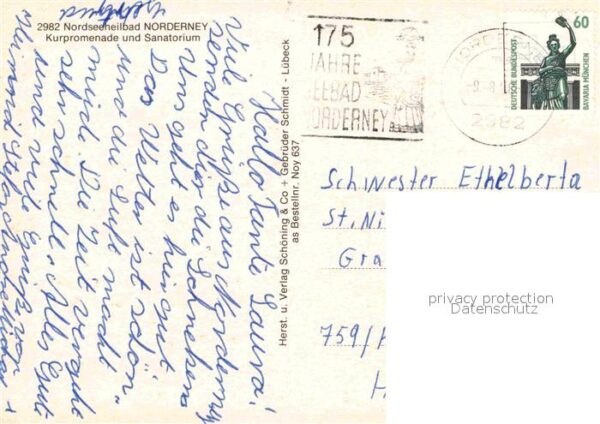 2982 Nordseeheilbad NORDERNEY
Kurpromenade und Sanatorium
Hallo Tante Laura!
Viele Grüße aus Norderney
senden dir die Schnehens
Uns geht es hier gut
Das Wetter ist schön,
und die Luft macht
müde. Die Zeit vergeht
sehr schnell. Alles Gute
und viele Grüße von
Herst. u. Verlag Schöning & Co + Gebrüder Schmidt - Lübeck
as Bestellnr. Noy 637
175
JAHRE
SEEBAD
NORDERNEY
2982
60
DEUTSCHE BUNDESPOST
BAVARIA MÜNCHEN
Schwester Ethelberta
St. Ni
Gra
759/
privacy protection
Datenschutz